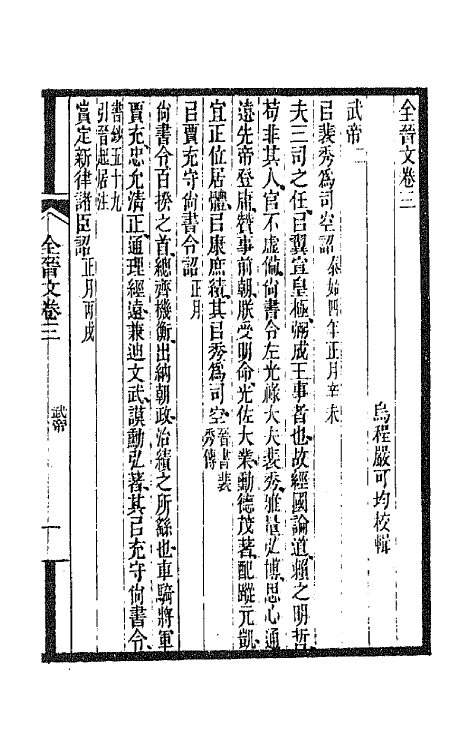 全晉文卷三
烏程嚴可均校輯
武帝二
㠯裴秀爲司空詔泰始四年正月辛未
夫三司之任㠯翼宣皇極弼成王事者也故經國論道賴之明哲
苟非其人官不虛備尚書令左光祿大夫裴秀雅量弘博思心通
遠先帝登庸贊事前朝朕受明命光佐大業勳德茂著配蹤元凱
宜正位居體㠯康庶績其㠯秀爲司空晉書裴秀傳
㠯賈充守尚書令詔正月
尚書令百揆之首總齊機衡出納朝政治績之所繇也車騎將軍
賈充忠允清正通理經遠兼迪文武謨勳弘著其㠯充守尚書令
書鈔五十九引晉起居注
賞定新律諸臣詔正月丙戌
全晉文卷三
武帝
一